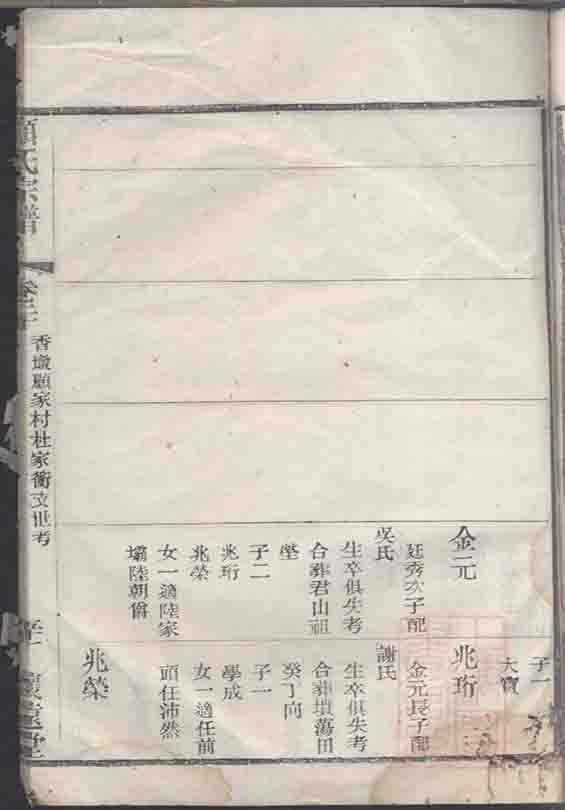 子一
大寶
金元
廷秀次子配
吳氏
生卒俱失考
合葬君山祖
塋
子二
兆珩
兆榮
女一適陸家
壩陸朝倫
兆珩
金元長子配
謝氏
生卒俱失考
合葬墳蕩田
癸丁向
子一
學成
女一適任前
頭任沛然
兆榮
氏宗譜
香墩顧家村杜家衖支世考